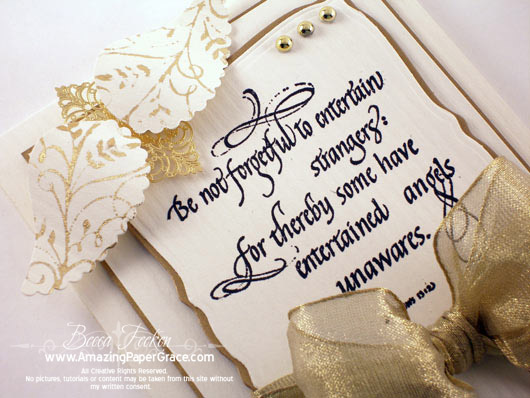 Be not forgetful to entertain
strangers:
for thereby some have
entertained angels
unawares.
Becca Feeken
www.AmazingPaperGrace.com
All Creative Rights Reserved.
No pictures, tutorials or content may be taken from this site without
my written consent.